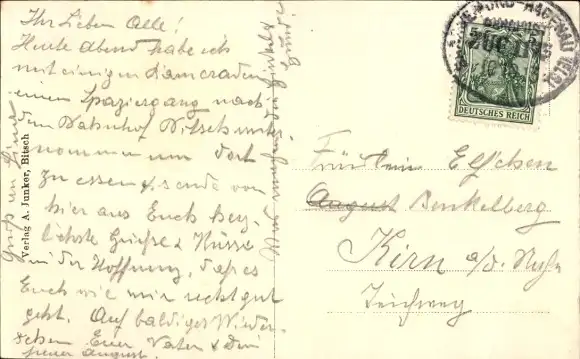 Ihr Lieben Alle!
Heute Abend habe ich
mit einigen Kameraden
einen Spaziergang nach
dem Bahnhof Bitsch unter-
nommen um dort
zu essen & sende von
hier aus Euch herz-
lichste Grüsse & Küsse
in der Hoffnung, dass es
Euch wie mir recht gut
geht. Auf baldiges Wieder-
sehen Euer Vater & Dein
treuer August.
Gruss an
Verlag A. Junker, Bitsch
Was machen
DEUTSCHES REICH
Fräulein Elschen
August Benkelberg
Kirn a/d. Nahe
Teichweg